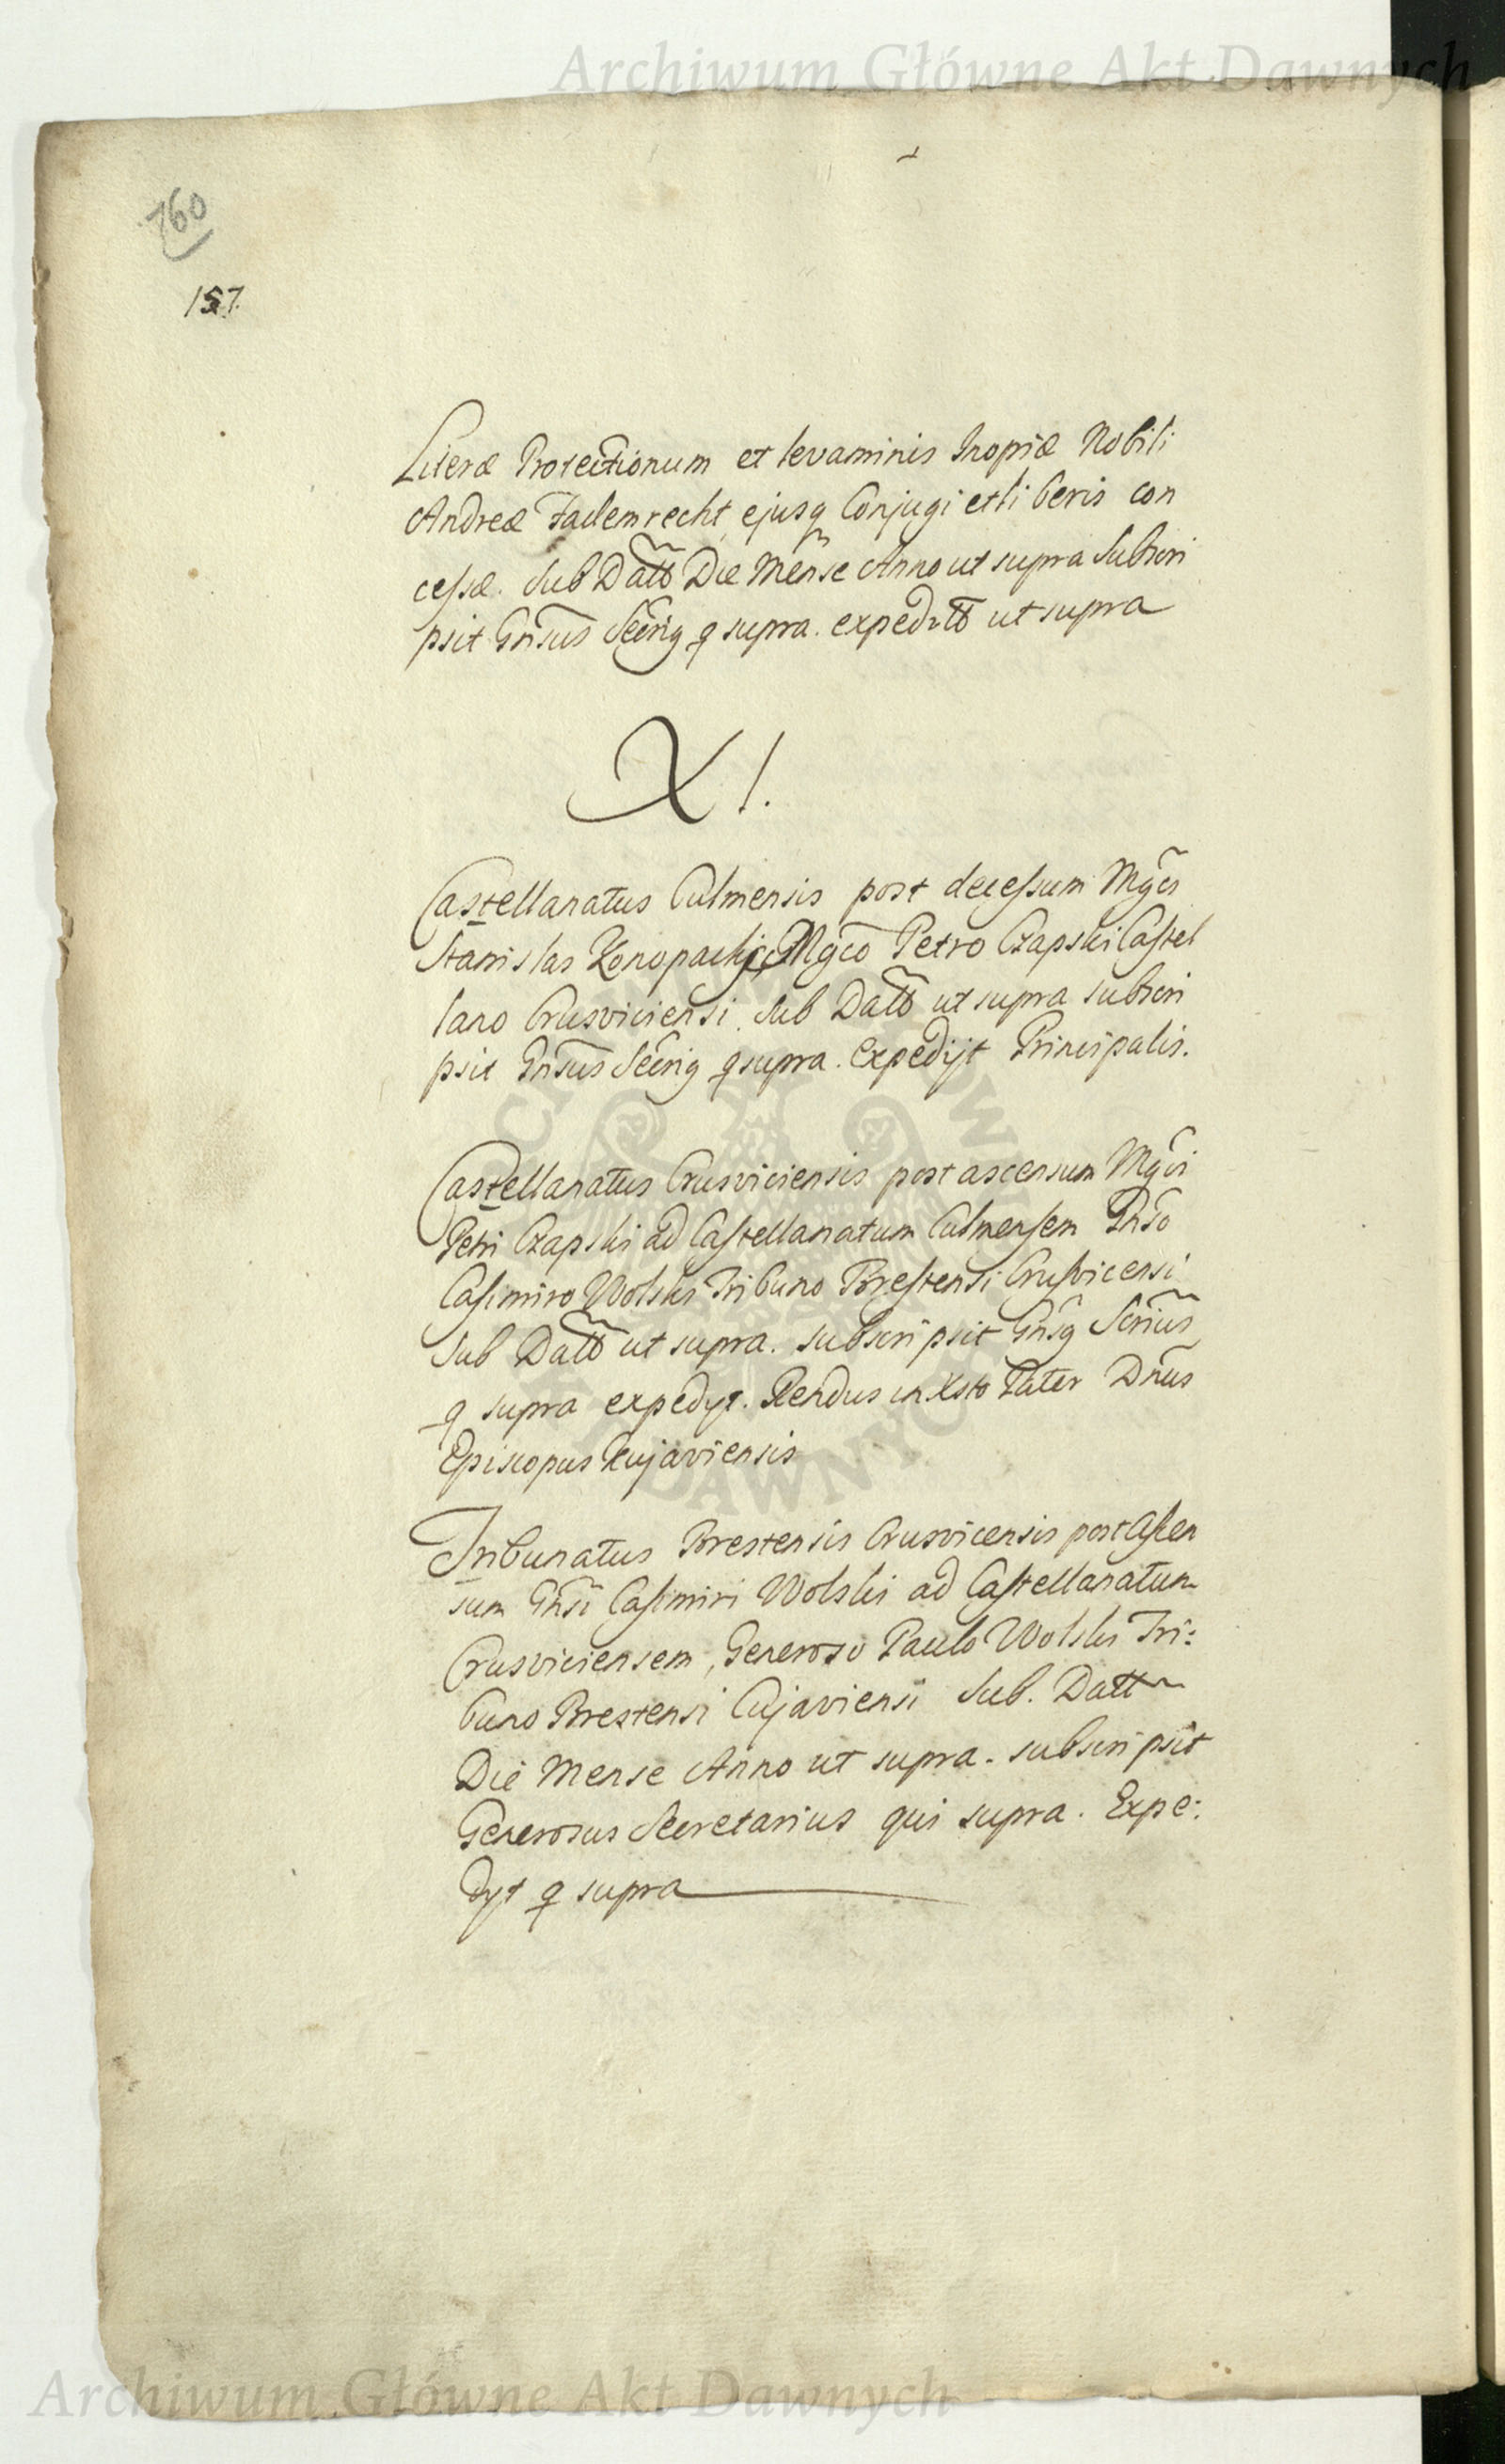 Archiwum Główne Akt Dawnych
760
157.
Literæ Protectionum et levaminis Inopiæ Nobili
Andreæ ejusq Conjugi et liberis con
cessæ. Sub Datt Die Mense Anno ut supra Subscri
psit Gnsus Secrig q supra. expeditt ut supra
XI.
Castellanatus Culmensis post decessum Mgci
Stanislai Konopacki Mgco Petro Czapski Castel
lano Crusviciensi. Sub Datt ut supra subscri
psit Gnsus Secrig q supra. Expedijt Principalis.
Castellanatus Crusviciensis post ascensum Mgci
Petri Czapski ad Castellanatum Culmensem Gnso
Casimiro Wolski Tribuno Brestensi Crusvicensi
Sub Datt ut supra. subscripsit Gnsq Scrius
q supra expedyt. Rendus in Xsto Pater Dnus
Episcopus Kujaviensis
Tribunatus Brestensis Crusvicensis post Ascen
sum Gnsi Casimiri Wolski ad Castellanatum
Crusviciensem, Generoso Paulo Wolski Tri:
buno Brestensi Cujaviensi Sub. Datt
Die Mense Anno ut supra. subscripsit
Generosus Secretarius qui supra. Expe:
dyt q supra
Archiwum Główne Akt Dawnych